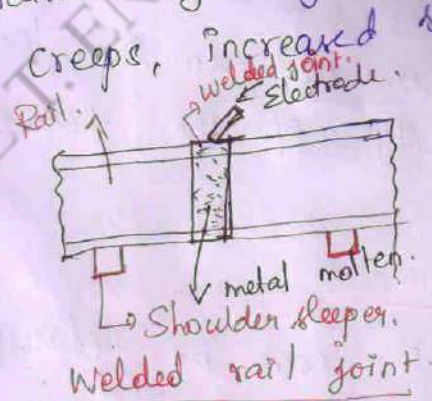 creeps, increased
welded joint.
Electrode.
Rail.
metal molten.
Shoulder sleeper.
Welded rail joint.